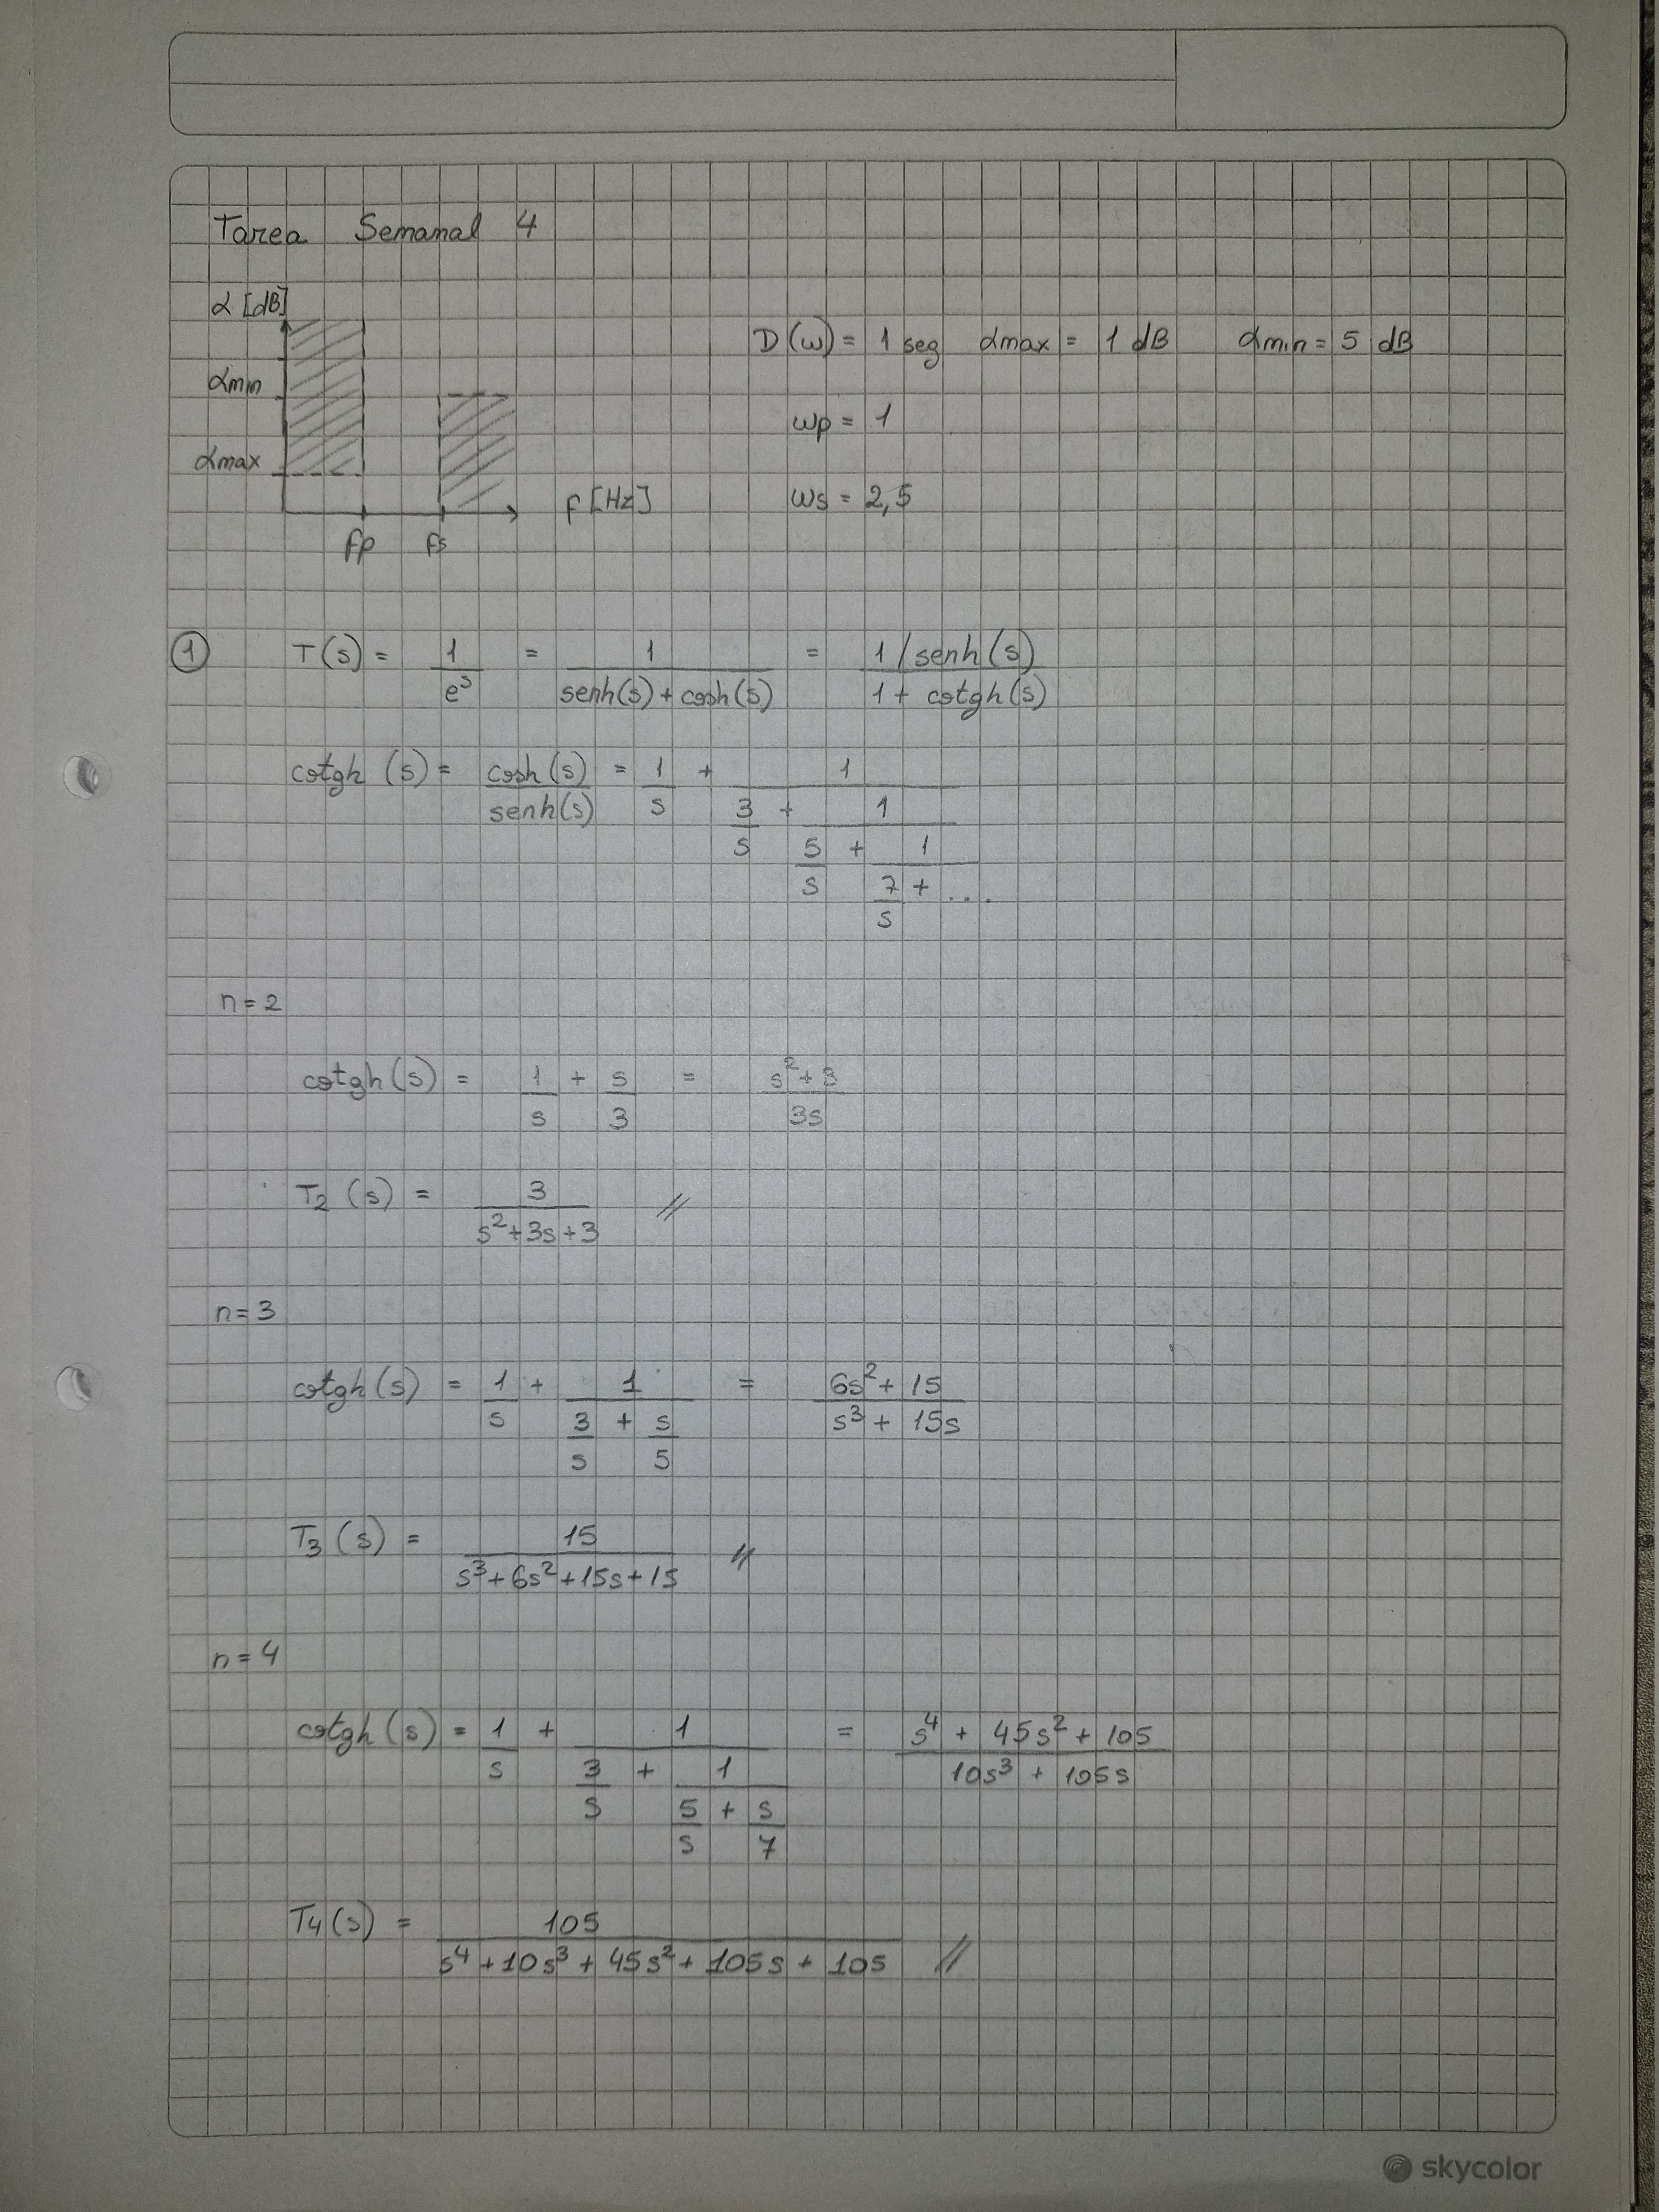 Tarea Semanal 4
α [dB]
αmin
αmax
fp fs
f [Hz]
D(ω) = 1 seg αmax = 1 dB αmin = 5 dB
ωp = 1
ωs = 2,5
① T(s) = 1/e^s = 1/(senh(s) + cosh(s)) = (1/senh(s))/(1 + cotgh(s))
cotgh (s) = cosh(s)/senh(s) = 1/s + 1/(3/s + 1/(5/s + 1/(7/s + ...)))
n = 2
cotgh(s) = 1/s + s/3 = (s² + 3)/(3s)
T₂ (s) = 3/(s² + 3s + 3) //
n = 3
cotgh(s) = 1/s + 1/(3/s + s/5) = (6s² + 15)/(s³ + 15s)
T₃ (s) = 15/(s³ + 6s² + 15s + 15) //
n = 4
cotgh (s) = 1/s + 1/(3/s + 1/(5/s + s/7)) = (s⁴ + 45s² + 105)/(10s³ + 105s)
T₄(s) = 105/(s⁴ + 10s³ + 45s² + 105s + 105) //
skycolor